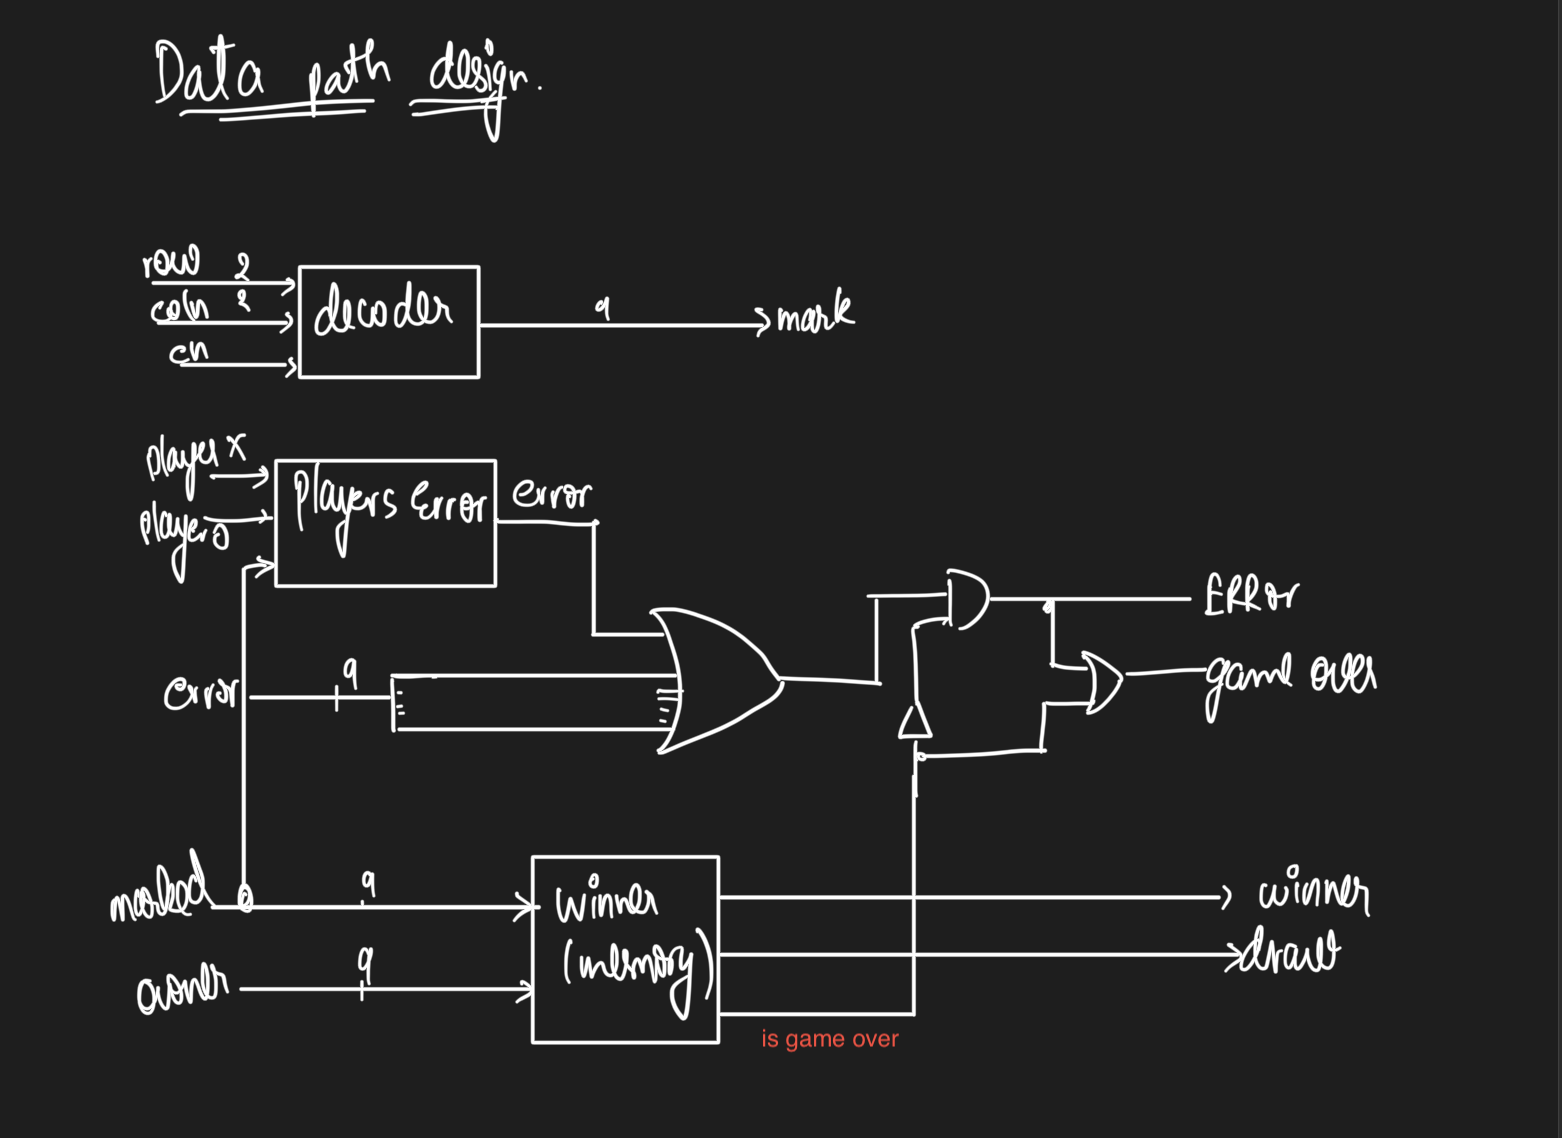 Data path design.
row 2
coln 2
en
decoder
9
mark
player X
player O
Players Error
error
error
9
ERROr
game over
marked
9
owner
9
winner
(memory)
winner
draw
is game over